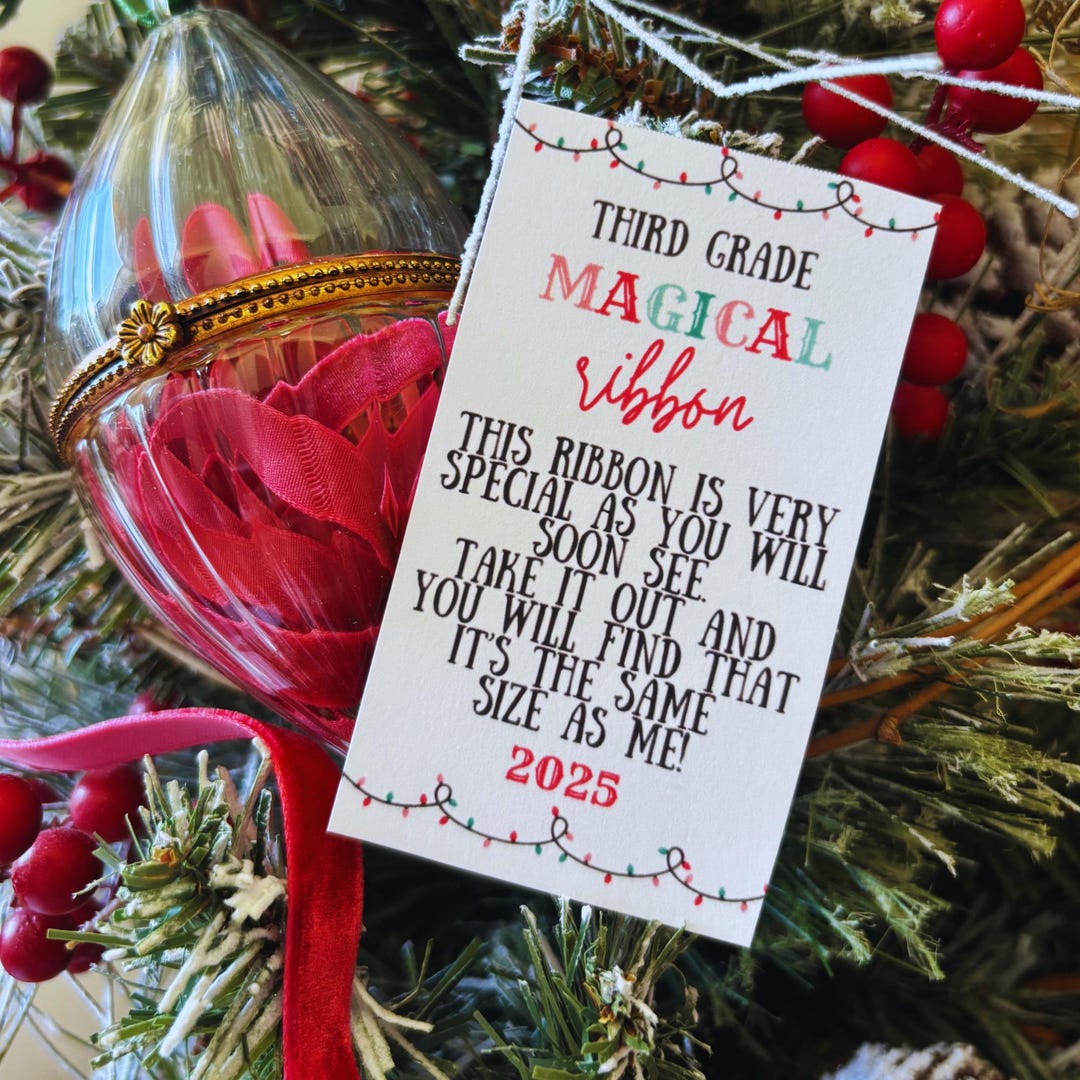 THIRD GRADE
MAGICAL
ribbon
THIS RIBBON IS VERY
SPECIAL AS YOU WILL
SOON SEE.
TAKE IT OUT AND
YOU WILL FIND THAT
IT'S THE SAME
SIZE AS ME!
2025